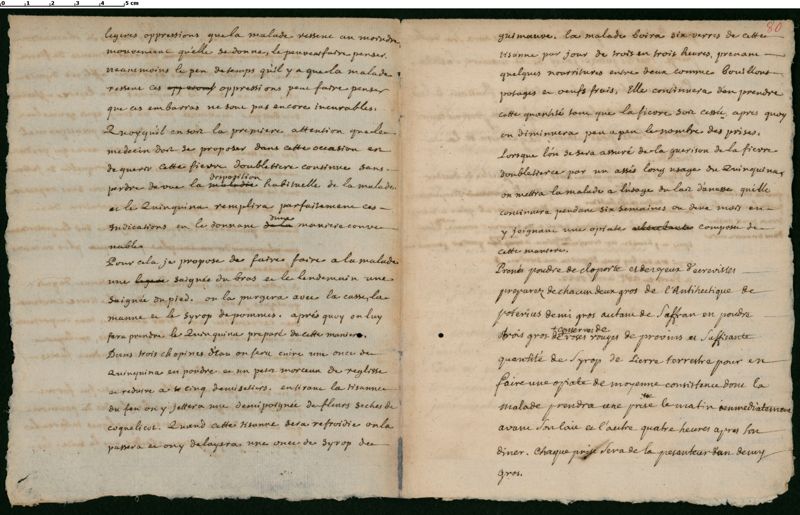 0 1 2 3 4 5 cm
legeres oppressions que la malade ressent au moindre
mouvement qu'elle se donne, le peuvent faire penser.
neanmoins le peu de temps qu'il y a que la malade
ressent ces oppressions peut faire penser
que ces embarras ne sont pas encore incurables.
Quoyqu'il en soit la premiere attention que le
medecin doit se proposer dans cette occasion est
de guerir cette fievre doubletierce continue sans
disposition
perdre de vue la maladie habituelle de la malade
et le Quinquina remplira parfaitement ces
indications en le donnant de la maniere conve
nable
Pour cela je propose de faire faire a la malade
une legere saignée du bras et le lendemain une
saignée du pied. on la purgera avec la casse, la
manne et le syrop de pommes. aprés quoy on luy
fera prendre le Quinquina preparé de cette maniere.
Dans trois chopines d'eau on fera cuire une once de
Quinquina en poudre et un petit morceau de reglisse
et reduire a cinq demisetiers. en tirant la tisanne
du feu on y jettera une demipoignée de fleurs seches de
coquelicot. Quand cette tisanne sera refroidie on la
passera et on y delayera une once de syrop de
80
guimauve. la malade boira six verres de cette
tisanne par jour de trois en trois heures, prenant
quelques nourritures entre deux comme bouillons
potages et oeufs frais. Elle continuera d'en prendre
cette quantité tant que la fievre soit cessée, apres quoy
on diminuera peu a peu le nombre des prises.
Lorsque l'on se sera assuré de la guerison de la fievre
doubletierce par un assés long usage du Quinquina
on mettra la malade a l'usage du lait d'anesse qu'elle
continuera pendant six semaines ou deux mois en
y joignant une opiate composée de
cette maniere.
Prenés poudre de cloporte et des yeux d'ecrevisses
preparez de chacun deux gros de l'Antihectique de
poterius demi gros autant de Saffran en poudre
conserve de
trois gros de roses rouges de provins et suffisante
quantité de syrop de Lierre terrestre pour en
faire une opiate de moyenne consistence dont la
malade prendra une prise le matin immediatement
avant son lait et l'autre quatre heures apres son
diner. Chaque prise sera de la pesanteur d'un demy
gros.